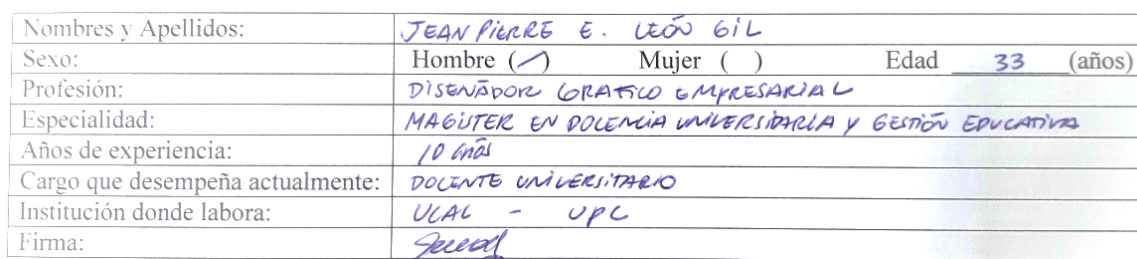 Nombres y Apellidos: JEAN PIERRE E. LEÓN GIL
Sexo: Hombre (✓) Mujer ( ) Edad 33 (años)
Profesión: DISEÑADOR GRAFICO EMPRESARIAL
Especialidad: MAGISTER EN DOCENCIA UNIVERSITARIA Y GESTIÓN EDUCATIVA
Años de experiencia: 10 años
Cargo que desempeña actualmente: DOCENTE UNIVERSITARIO
Institución donde labora: UCAL - UPC
Firma: